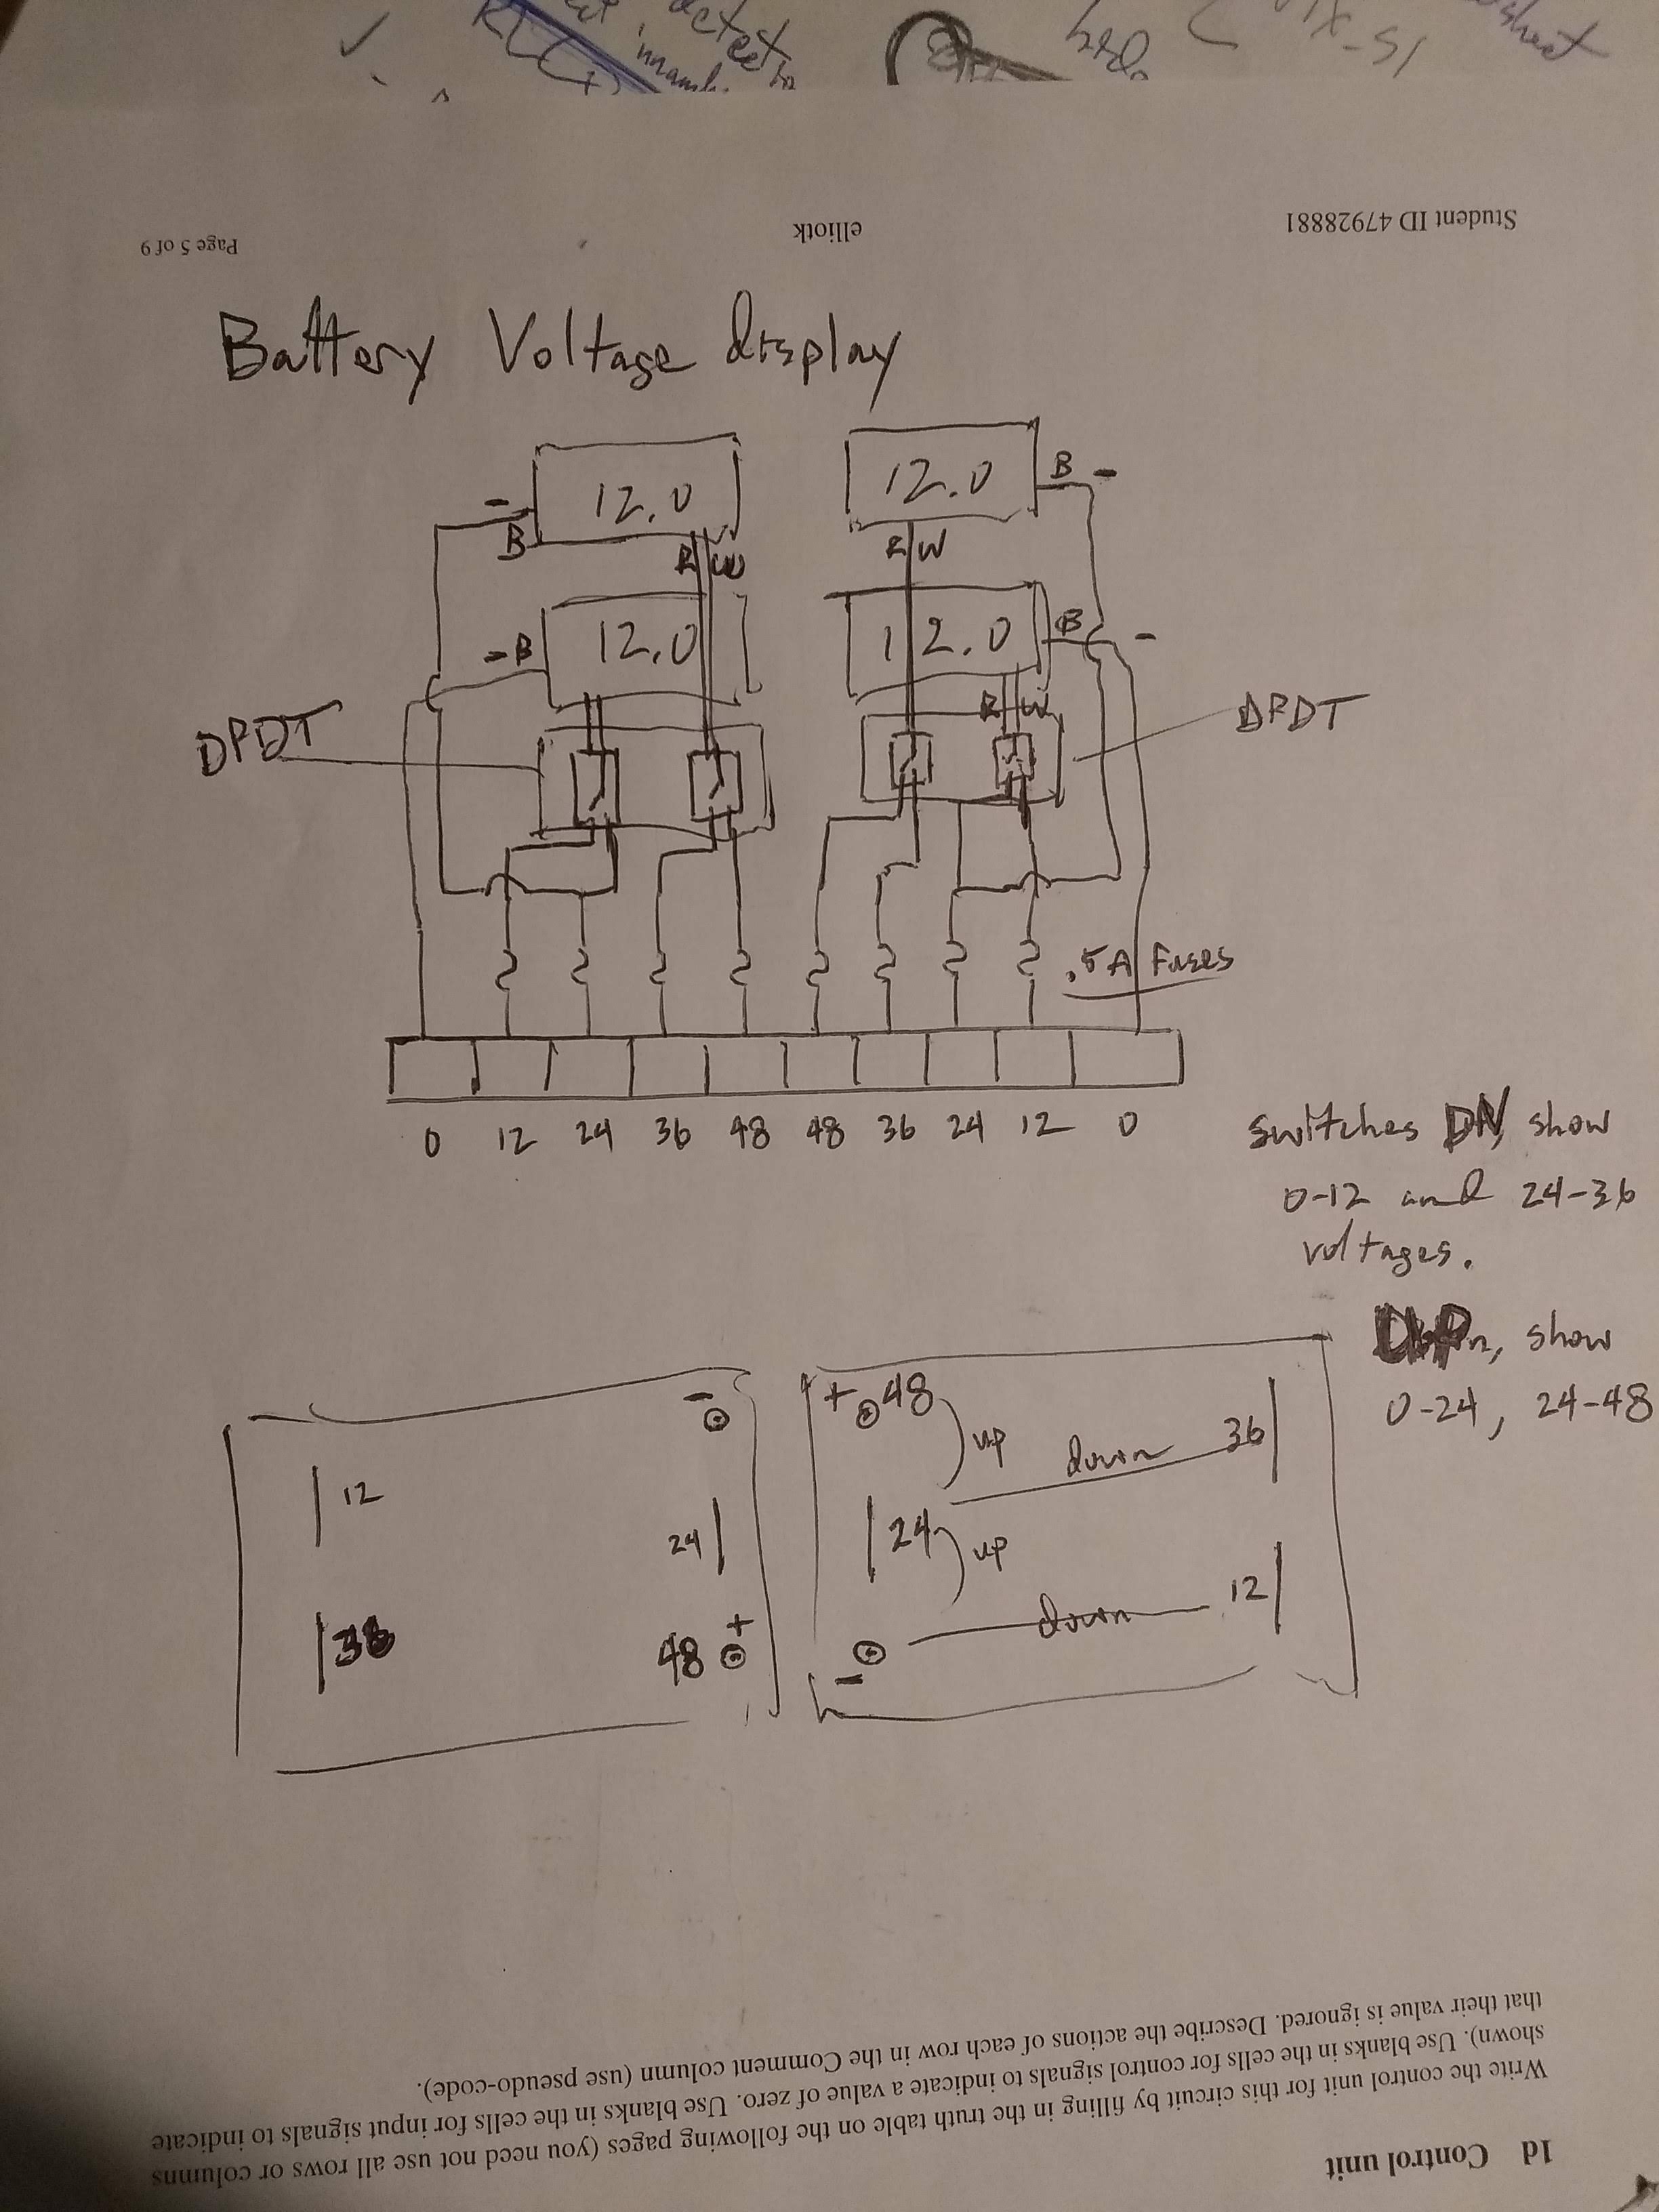 Student ID 47928881 elliotk Page 5 of 9
Battery Voltage display
12.0 12.0 B -
- B R W R W
12.0 12.0 B -
- B R W
DPDT DPDT
.5A Fuses
0 12 24 36 48 48 36 24 12 0
switches DN, show
0-12 and 24-36
voltages.
UP, show
0-24, 24-48
- + 48 up down 36
12 24 24 up
38 48 + - down 12
1d Control unit
Write the control unit for this circuit by filling in the truth table on the following pages (you need not use all rows or columns
shown). Use blanks in the cells for control signals to indicate a value of zero. Use blanks in the cells for input signals to indicate
that their value is ignored. Describe the actions of each row in the Comment column (use pseudo-code).